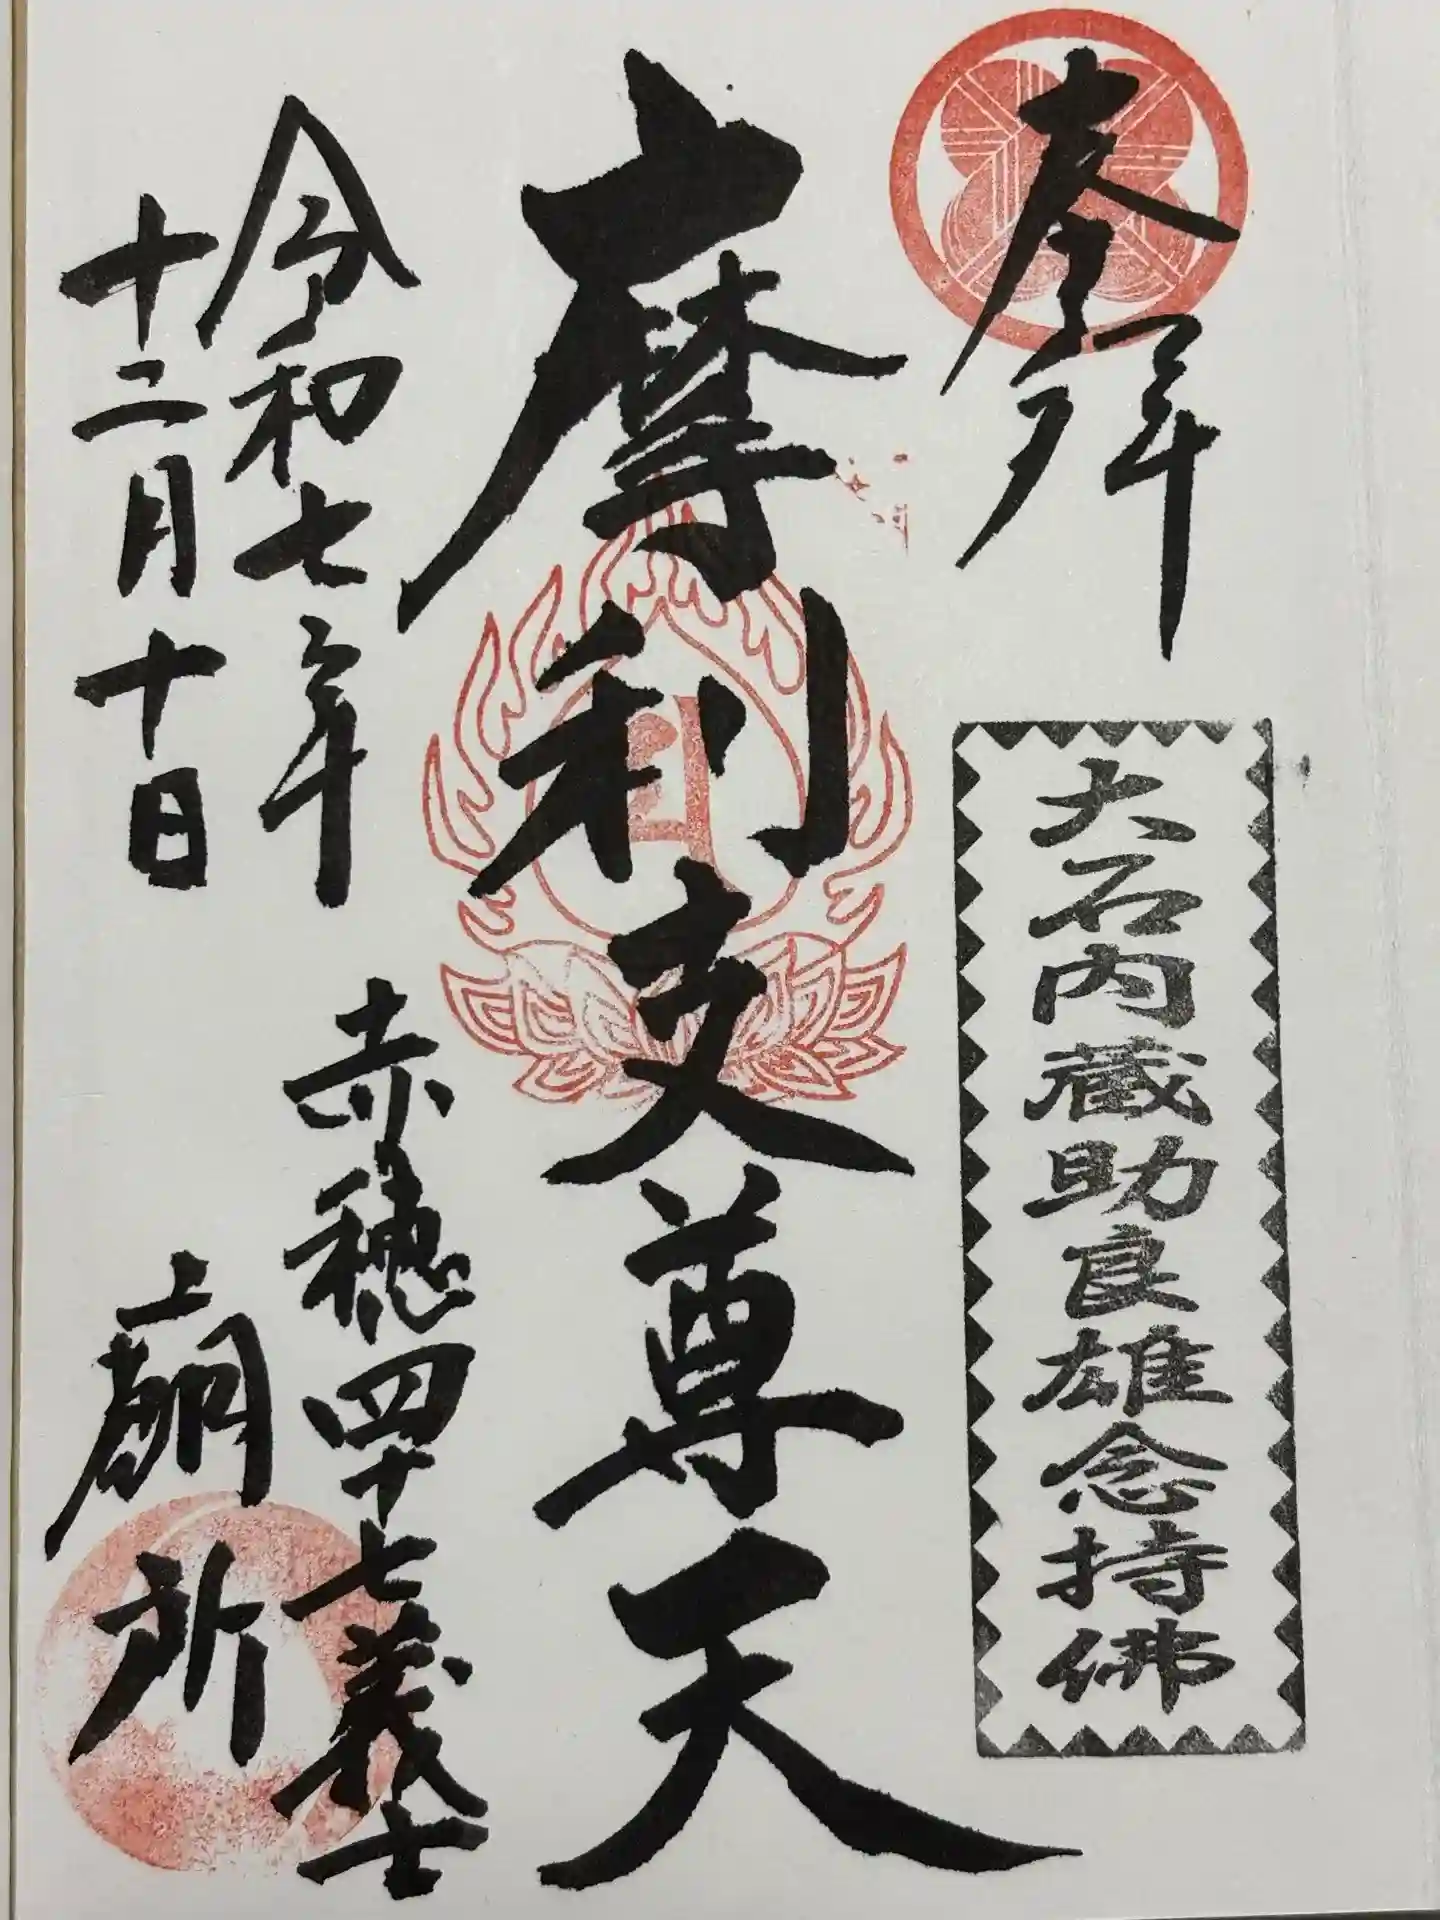 奉拜
大石内蔵助良雄念持佛
摩利支尊天
令和七年
十二月十日
赤穂四十七義士
上廟所